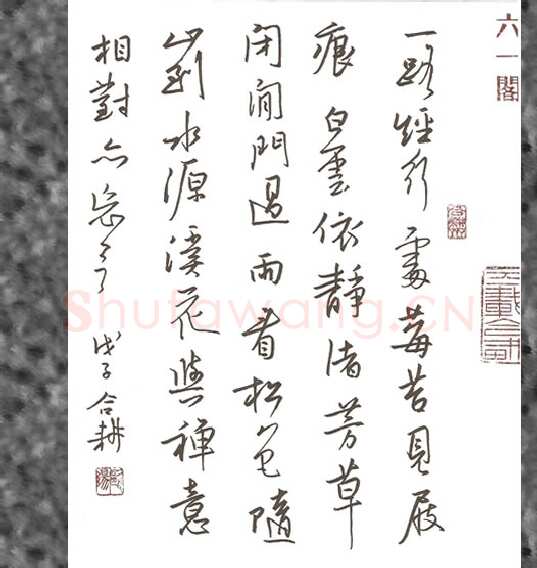 六一閣
一路經行處莓苔見屐
痕白雲依靜渚芳草
閉閒門過雨看松色隨
山到水源溪花與禪意
相對亦忘言 戊子合耕
Shufawang.CN